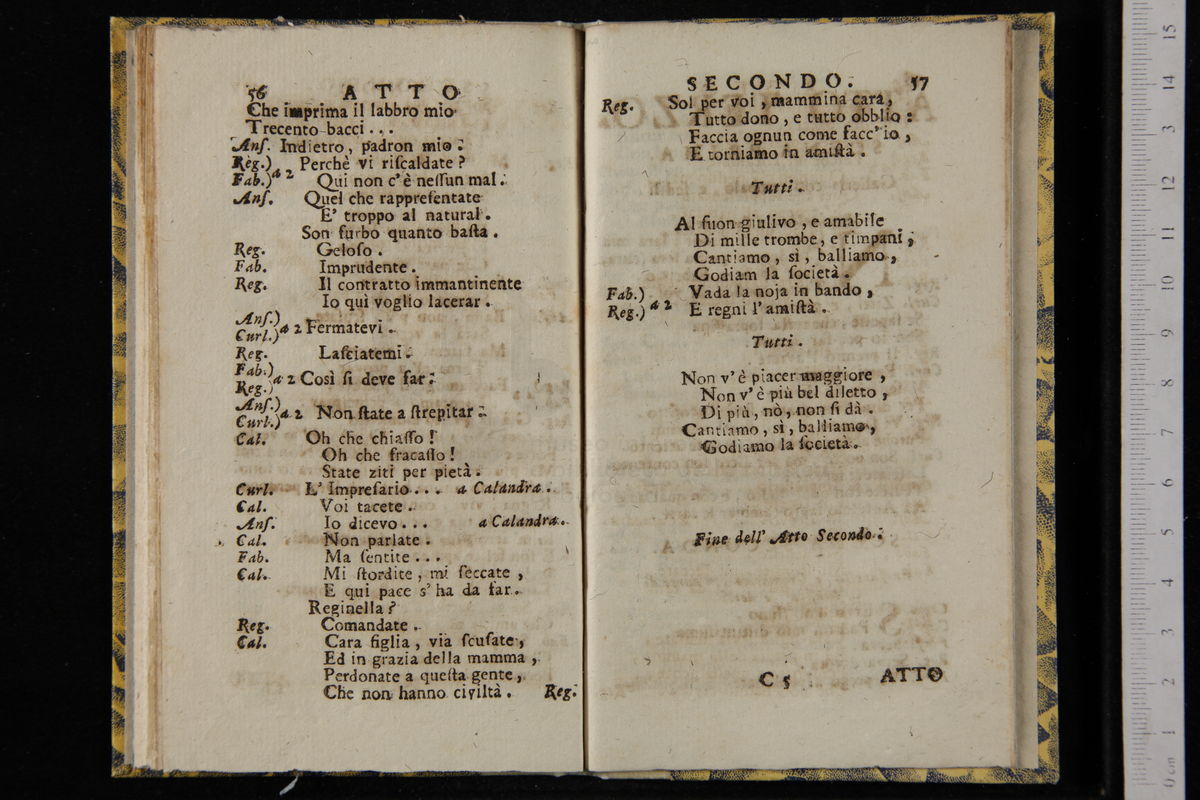 56 ATTO
Che imprima il labbro mio
Trecento bacci...
Anſ. Indietro, padron mio.
Reg.) Perchè vi riſcaldate?
Fab.) a 2 Qui non c'è neſſun mal.
Anſ. Quel che rappreſentate
E' troppo al natural.
Son furbo quanto baſta.
Reg. Geloſo.
Fab. Imprudente.
Reg. Il contratto immantinente
Io quì voglio lacerar.
Anſ.)
Curl.) a 2 Fermatevi.
Reg. Laſciatemi.
Fab.)
Reg.) a 2 Così ſi deve far.
Anſ.)
Curl.) a 2 Non ſtate a ſtrepitar.
Cal. Oh che chiaſſo!
Oh che fracaſſo!
State ziti per pietà.
Curl. L' Impreſario... a Calandra.
Cal. Voi tacete.
Anſ. Io dicevo... a Calandra.
Cal. Non parlate.
Fab. Ma ſentite...
Cal. Mi ſtordite, mi ſeccate,
E qui pace s' ha da far.
Reginella?
Reg. Comandate.
Cal. Cara figlia, via ſcuſate,
Ed in grazia della mamma,
Perdonate a queſta gente,
Che non hanno civiltà. Reg.
SECONDO. 57
Reg. Sol per voi, mammina cara,
Tutto dono, e tutto obblio:
Faccia ognun come facc' io,
E torniamo in amiſtà.
Tutti.
Al ſuon giulivo, e amabile
Di mille trombe, e timpani,
Cantiamo, sì, balliamo,
Godiam la ſocietà.
Fab.) Vada la noja in bando,
Reg.) a 2 E regni l' amiſtà.
Tutti.
Non v' è piacer maggiore,
Non v' è più bel diletto,
Di più, nò, non ſi dà.
Cantiamo, sì, balliamo,
Godiamo la ſocietà.
Fine dell' Atto Secondo.
C 5 ATTO
0 cm 1 2 3 4 5 6 7 8 9 10 11 12 13 14 15